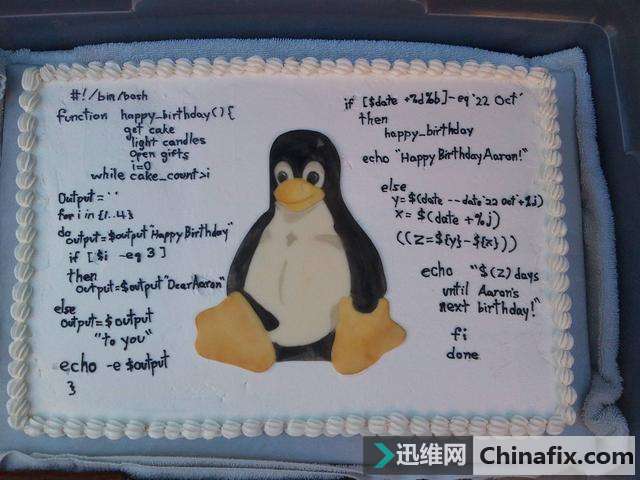 #!/bin/bash
function happy_birthday(){
get cake
light candles
open gifts
i=0
while cake_count>i
Output=''
for i in {1..4}
do
output=$output"Happy Birthday"
if [$i -eq 3]
then
output=$output"DearAaron"
else
output=$output
"to you"
echo -e $output
}
if [$date +%d%b]-eq '22 Oct'
then
happy_birthday
echo "Happy Birthday Aaron!"
else
y=$(date --date'22 Oct'+%j)
x=$(date +%j)
((z=${y}-${x}))
echo "$(z) days
until Aaron's
next birthday!"
fi
done
迅维网 Chinafix.com